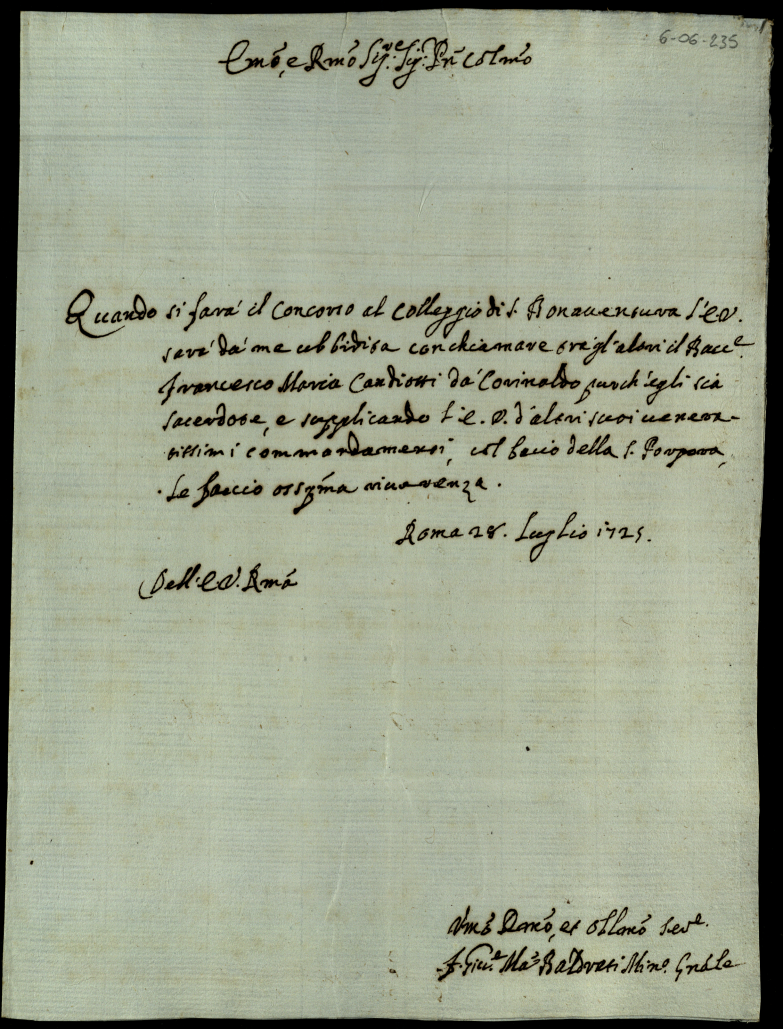 6-06-235
Emõ, e Rmõ Sig.re Sig. Pñ Colmõ
Quando si farà il Concorso al Colleggio di S. Bonaventura l'E.V.
sarà dà me ubbidita con chiamare tra gl'altri il Bacc.e
Francesco Maria Candiotti dà Corinaldo, purch'egli sia
sacerdote, e supplicando l'E. V. d'altri suoi venera-
tissimi commandamenti, col bacio della S. Porpora,
le faccio osseq̃ma riverenza.
Roma 28. Luglio 1725.
Dell'E.V. Rmã
Umõ Demõ, et Obbmõ Ser.e
F. Gius.e Ma Baldrati Min.o Gnãle